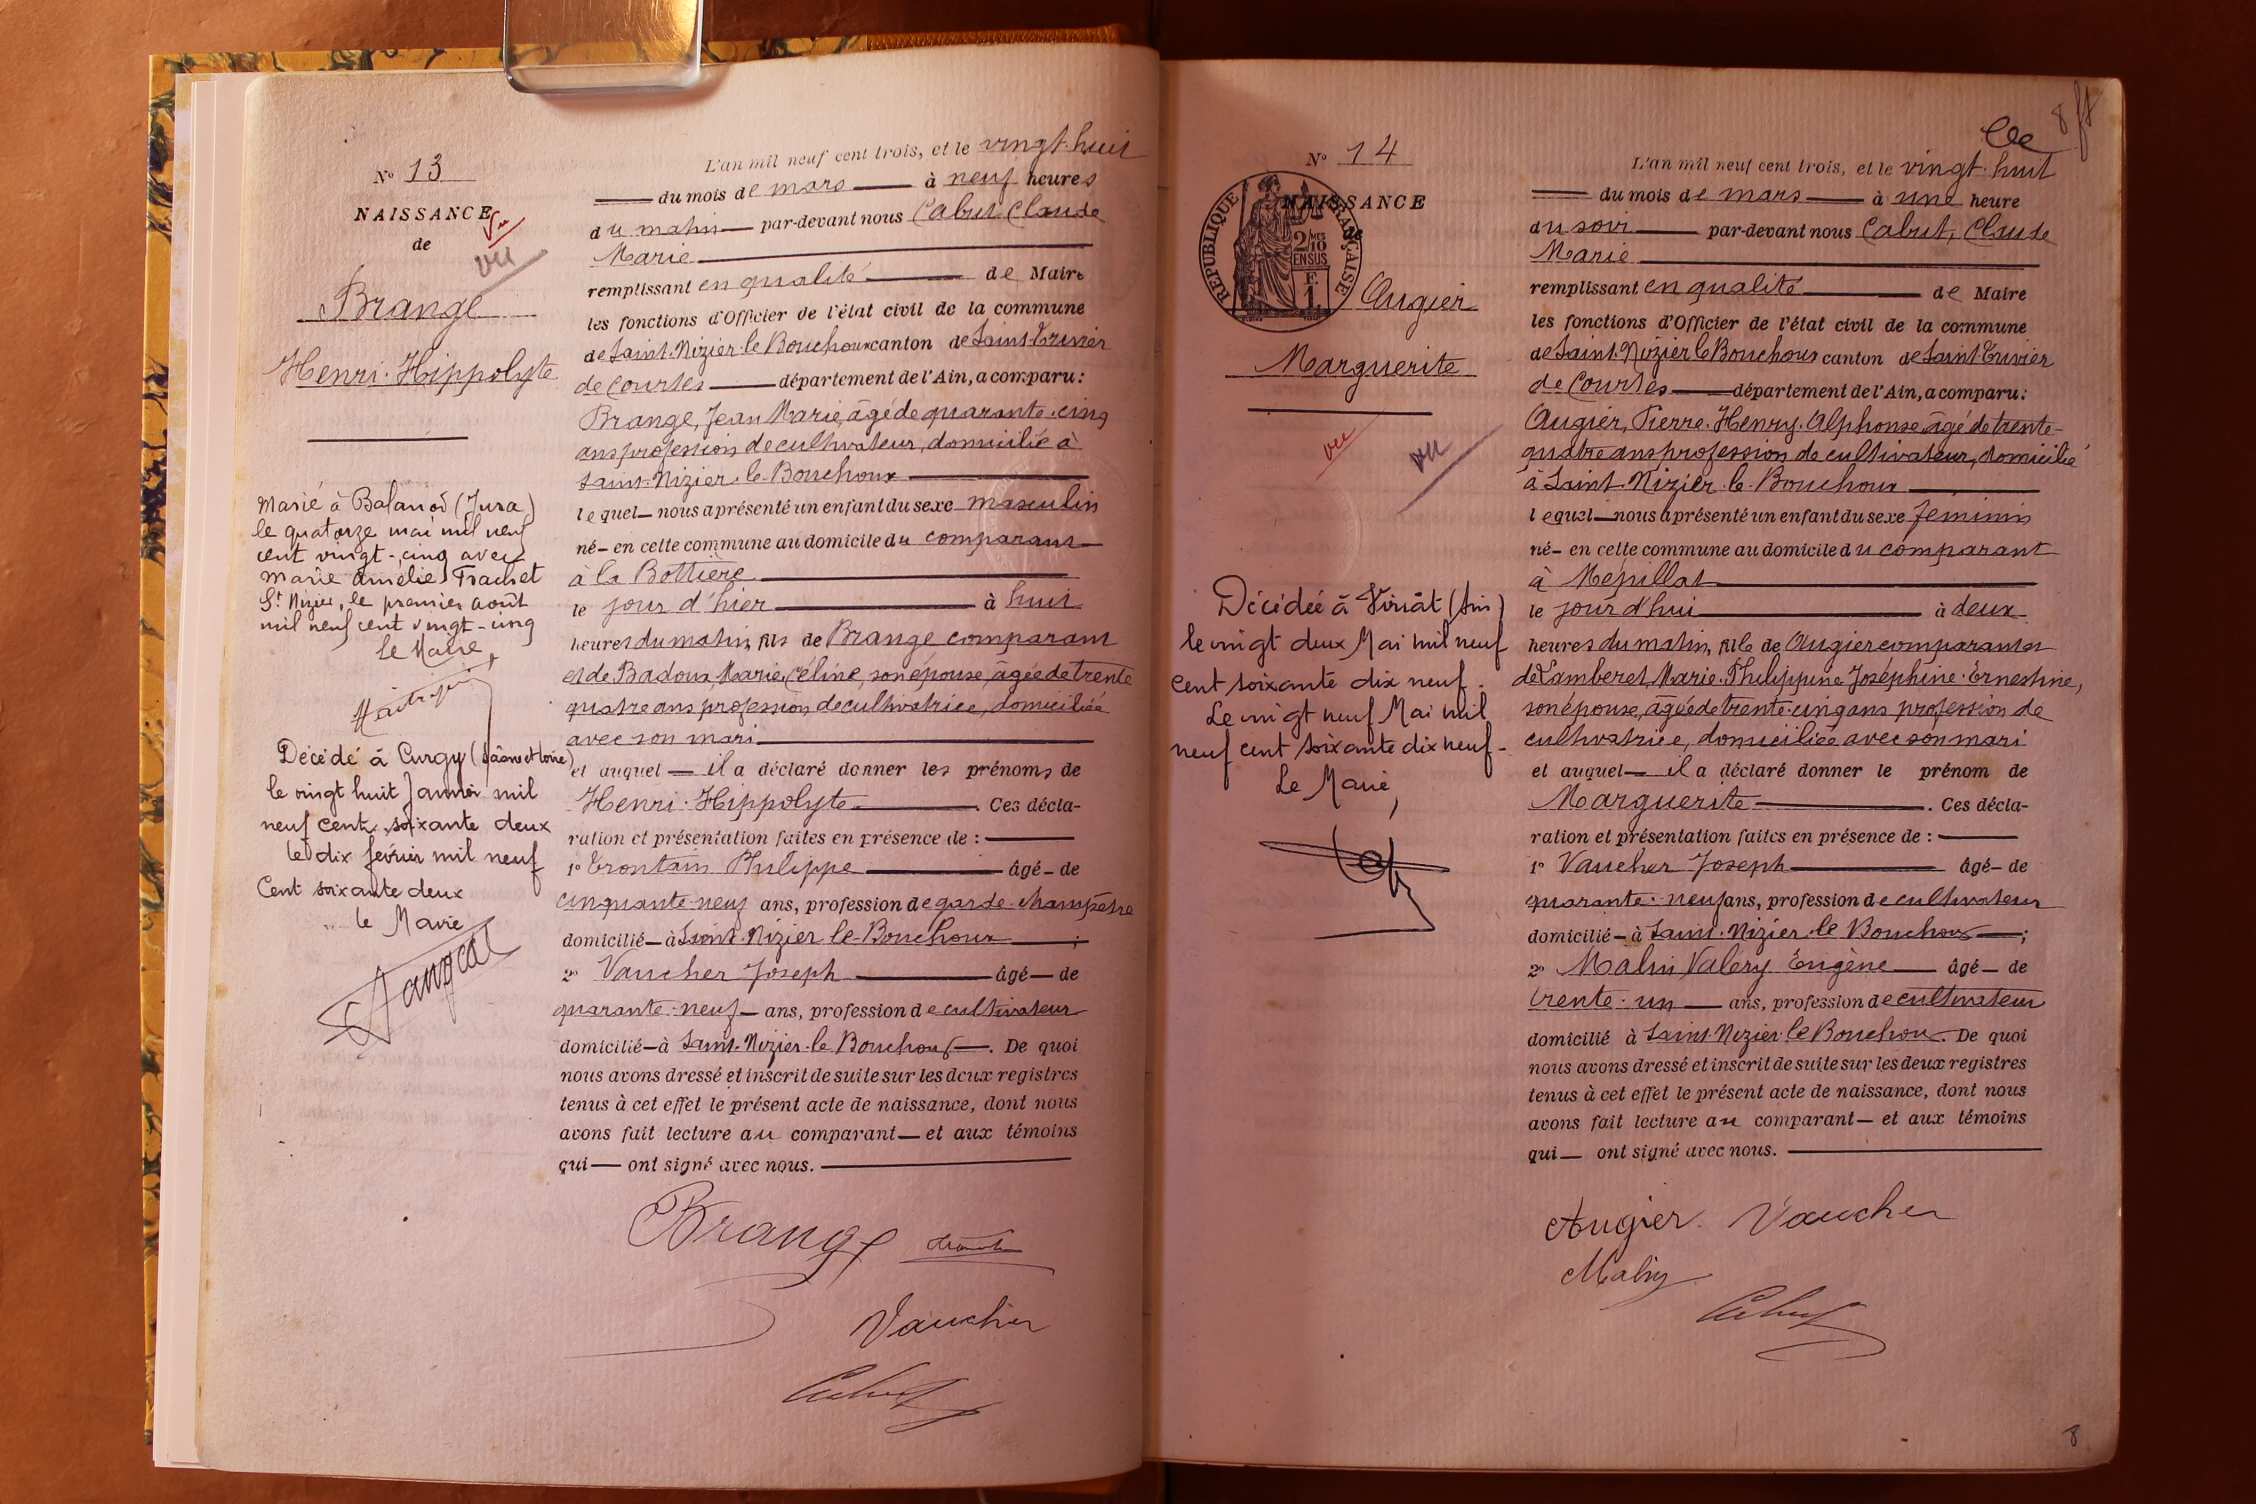 N° 13
NAISSANCE
de
vu
Brange
Henri Hippolyte
Marié à Balanod (Jura)
le quatorze mai mil neuf
cent vingt-cinq avec
Marie Amélie Trachet
St Nizier, le premier août
mil neuf cent vingt-cinq
Le Maire,
Décédé à Curgy (Saône et Loire)
le vingt huit Janvier mil
neuf cent soixante deux
le dix février mil neuf
Cent soixante deux
le Maire
L'an mil neuf cent trois, et le vingt-huit
du mois de mars à neuf heures
du matin par-devant nous Cabut, Claude
Marie
remplissant en qualité de Maire
les fonctions d'Officier de l'état civil de la commune
de Saint-Nizier-le-Bouchoux canton de Saint-Trivier
de Courtes département de l'Ain, a comparu:
Brange, Jean Marie, âgé de quarante-cinq
ans profession de cultivateur, domicilié à
Saint-Nizier-le-Bouchoux
lequel nous a présenté un enfant du sexe masculin
né en cette commune au domicile du comparant
à la Bottière
le jour d'hier à huit
heures du matin, fils de Brange comparant
et de Badoux, Marie Céline, son épouse, âgée de trente
quatre ans profession de cultivatrice, domiciliée
avec son mari
et auquel il a déclaré donner les prénoms de
Henri-Hippolyte. Ces décla-
ration et présentation faites en présence de :
1° Trontain Philippe âgé de
cinquante-neuf ans, profession de garde-champêtre
domicilié à Saint-Nizier-le-Bouchoux ;
2° Vaucher Joseph âgé de
quarante-neuf ans, profession de cultivateur
domicilié à Saint-Nizier-le-Bouchoux. De quoi
nous avons dressé et inscrit de suite sur les deux registres
tenus à cet effet le présent acte de naissance, dont nous
avons fait lecture au comparant et aux témoins
qui ont signé avec nous.
Brange
Vaucher
Cabut
8
N° 14
NAISSANCE
RÉPUBLIQUE FRANÇAISE
2/10
EN SUS
F
1
Augier
Marguerite
vu
vu
Décédée à Viriat (Ain)
le vingt deux Mai mil neuf
Cent soixante dix neuf.
Le vingt neuf Mai mil
neuf cent soixante dix neuf-
Le Maire,
L'an mil neuf cent trois, et le vingt-huit
du mois de mars à une heure
du soir par-devant nous Cabut, Claude
Marie
remplissant en qualité de Maire
les fonctions d'Officier de l'état civil de la commune
de Saint-Nizier le Bouchoux canton de Saint-Trivier
de Courtes département de l'Ain, a comparu:
Augier, Pierre-Henry-Alphonse, âgé de trente-
quatre ans profession de cultivateur, domicilié
à Saint-Nizier-le-Bouchoux
lequel nous a présenté un enfant du sexe féminin
né en cette commune au domicile du comparant
à Mépillat
le jour d'hui à deux
heures du matin, fille de Augier comparant et
de Lamberet, Marie-Philippine Joséphine-Ernestine,
son épouse, âgée de trente-cinq ans profession de
cultivatrice, domiciliée avec son mari
et auquel il a déclaré donner le prénom de
Marguerite. Ces décla-
ration et présentation faites en présence de :
1° Vaucher Joseph âgé de
quarante-neuf ans, profession de cultivateur
domicilié à Saint-Nizier-le Bouchoux ;
2° Malin Valery Eugène âgé de
trente-un ans, profession de cultivateur
domicilié à Saint-Nizier-le Bouchoux. De quoi
nous avons dressé et inscrit de suite sur les deux registres
tenus à cet effet le présent acte de naissance, dont nous
avons fait lecture au comparant et aux témoins
qui ont signé avec nous.
Augier Vaucher
Malin
Cabut
8